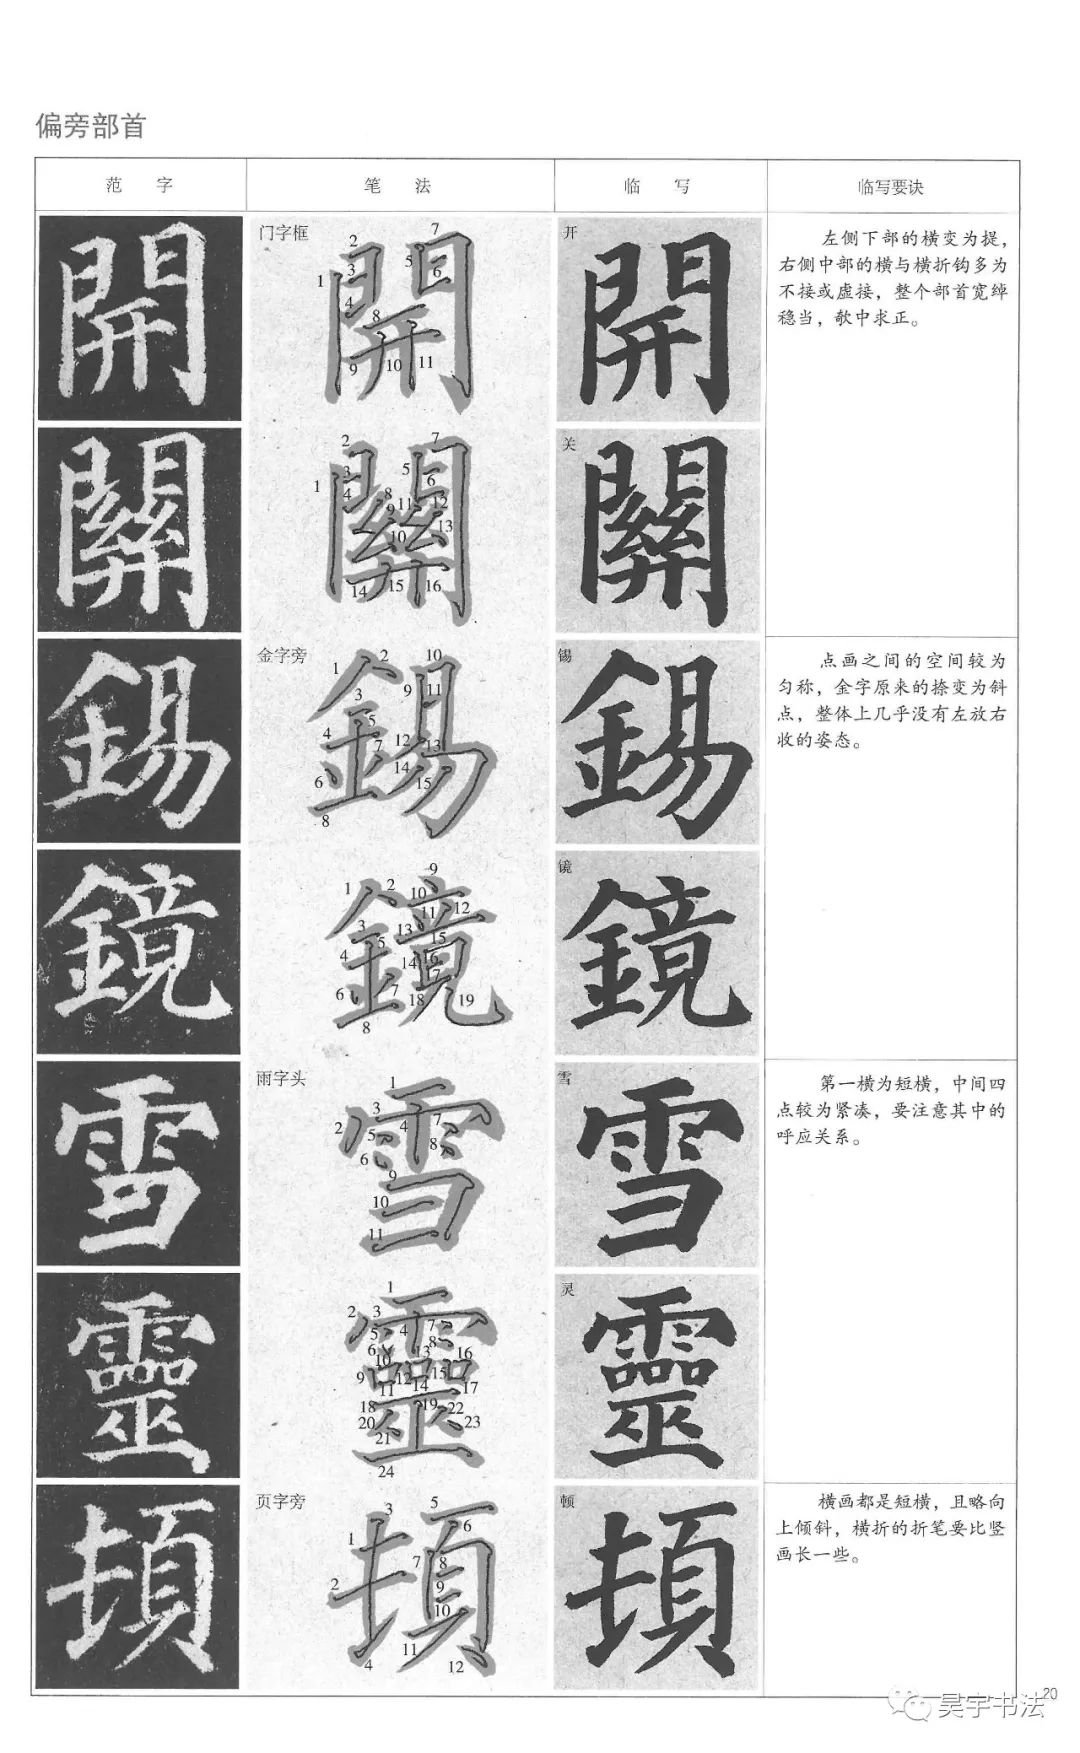 偏旁部首
范 字 笔 法 临 写 临写要诀
開
门字框
1 2 3 4 5 6 7 8 9 10 11
開
开
開
左侧下部的横变为提，
右侧中部的横与横折钩多为
不接或虚接，整个部首宽绰
稳当，欹中求正。
關
1 2 3 4 5 6 7 8 9 10 11 12 13 14 15 16
關
关
關
錫
金字旁
1 2 3 4 5 6 7 8 9 10 11 12 13 14 15
錫
锡
錫
点画之间的空间较为
匀称，金字原来的捺变为斜
点，整体上几乎没有左放右
收的姿态。
鏡
1 2 3 4 5 6 7 8 9 10 11 12 13 14 15 16 17 18 19
鏡
镜
鏡
雪
雨字头
1 2 3 4 5 6 7 8 9 10 11
雪
雪
雪
第一横为短横，中间四
点较为紧凑，要注意其中的
呼应关系。
靈
1 2 3 4 5 6 7 8 9 10 11 12 13 14 15 16 17 18 19 20 21 22 23 24
靈
灵
靈
頓
页字旁
1 2 3 4 5 6 7 8 9 10 11 12
頓
顿
頓
横画都是短横，且略向
上倾斜，横折的折笔要比竖
画长一些。
昊宇书法
20